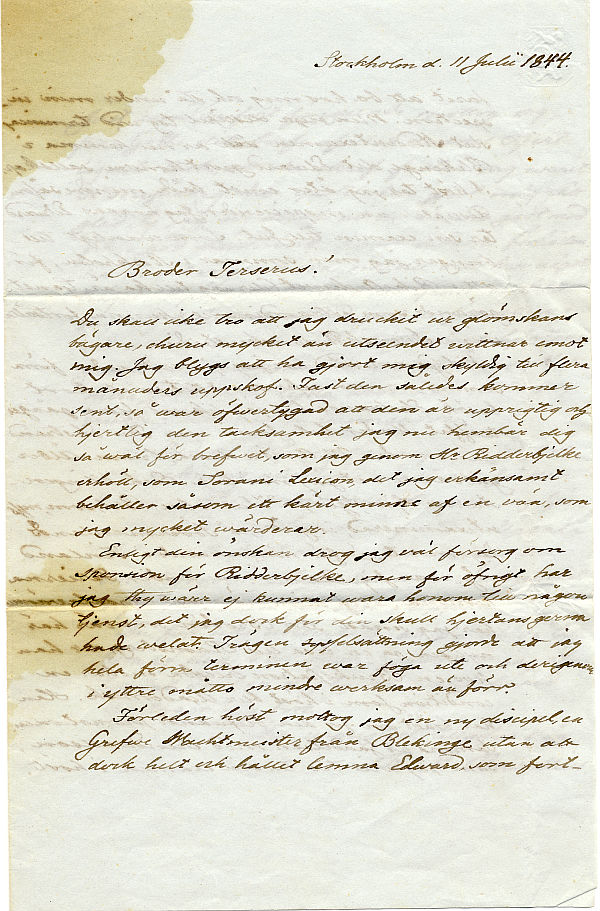 Stockholm d. 11 Julii 1844.
Broder Terserus!
Du skall icke tro att jag druckit ur glömskans
bägare, churu mycket än utseendet wittnar emot
mig. Jag blygs att ha gjort mig skyldig till flera
månaders uppskof. Fast den således kommer
sent, så war öfwertygad att den är upprigtig och
hjertlig den tacksamhet jag nu hembär dig
så wäl för brefwet, som jag genom Hr Ridderbjelke
erhöll, som Lexicon, det jag erkänsamt
behåller såsom ett kärt minne af en vän, som
jag mycket wärderar.
Enligt din önskan drog jag väl försorg om
sponsion för Ridderbjelke, men för öfrigt har
jag ej kunnat wara honom till någon
tjenst, det jag dock för din skull hjertans gerna
hade welat. Trägen sysselsättning gjorde att jag
hela förra terminen war föga ute och derigenom
i yttre måtto mindre werksam än förr.
Förleden höst mottog jag en ny discipel, en
Grefwe Wachtmeister från Blekinge utan att
dock helt och hållet lemna Edward, som fort-